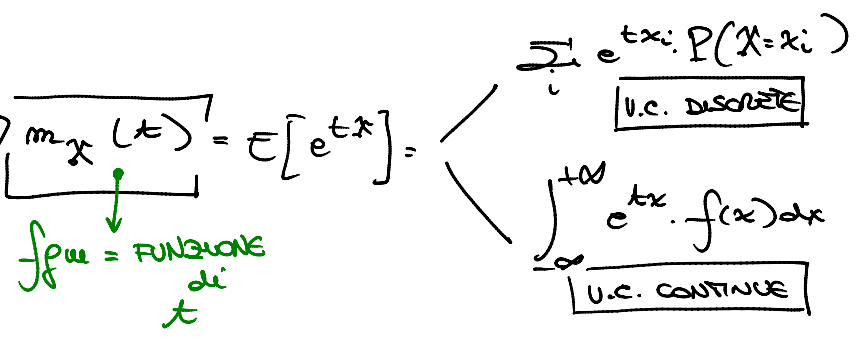 m_X(t) = E[e^{tX}] =
∑_i e^{tx_i} · P(X=x_i)
V.C. DISCRETE
∫_{-∞}^{+∞} e^{tx} · f(x)dx
V.C. CONTINUE
fgm = FUNZIONE
di
t